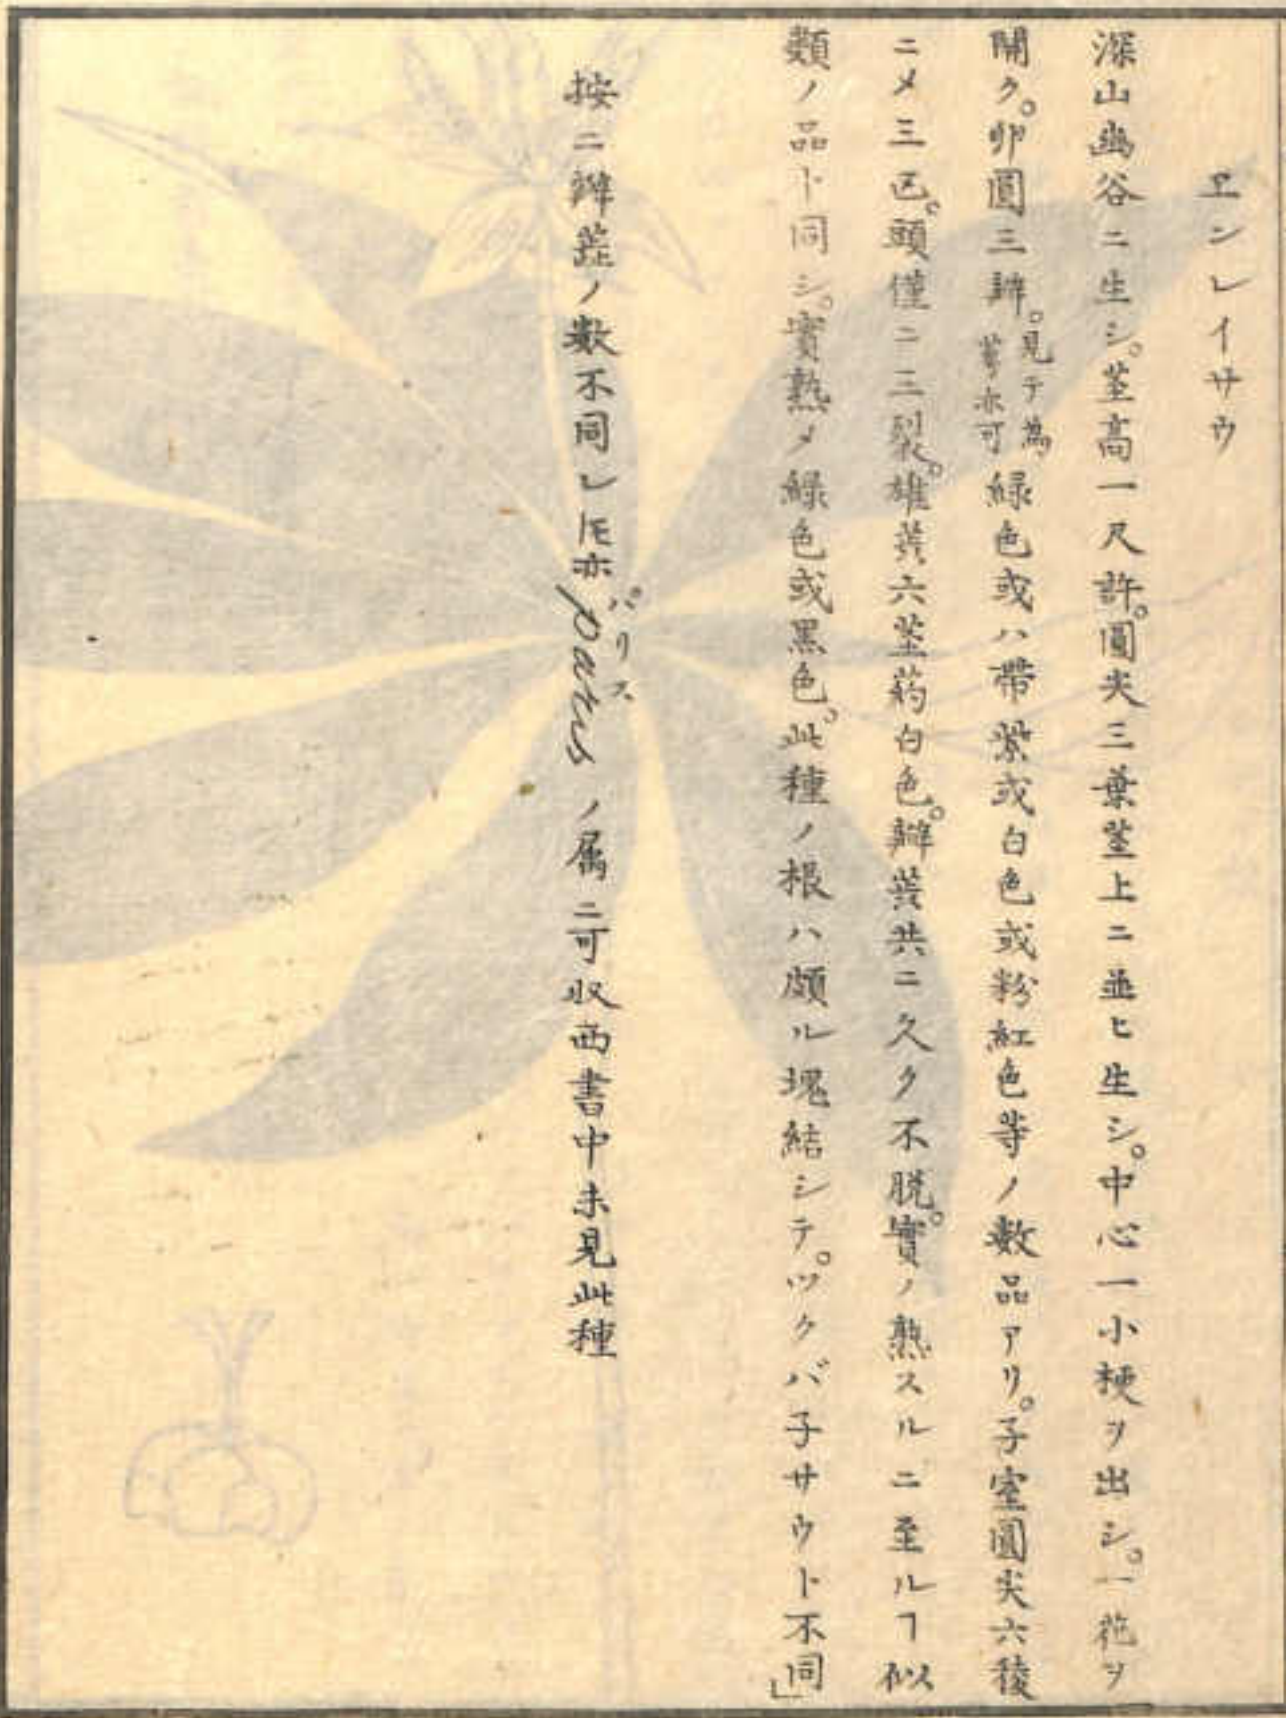 ヱンレイサウ
深山幽谷ニ生シ。莖高一尺許。圓尖三葉莖上ニ並ヒ生シ。中心一小梗ヲ出シ。一花ヲ
開ク。卵圓三瓣。見テ為萼亦可緑色或ハ帶紫或白色或粉紅色等ノ數品アリ。子室圓尖六稜
ニメ三*。頭僅ニ三裂。雄蕋六莖葯白色。瓣蕋共ニ久ク不脱。實ノ熟スルニ至ルヿ似
類ノ品ト同シ。實熟メ緑色或黒色。此種ノ根ハ頗ル塊結シテ。ツクバ子サウト不同」
按ニ瓣蕋ノ數不同レ𪜈亦parisパリスノ属ニ可收西書中未見此種